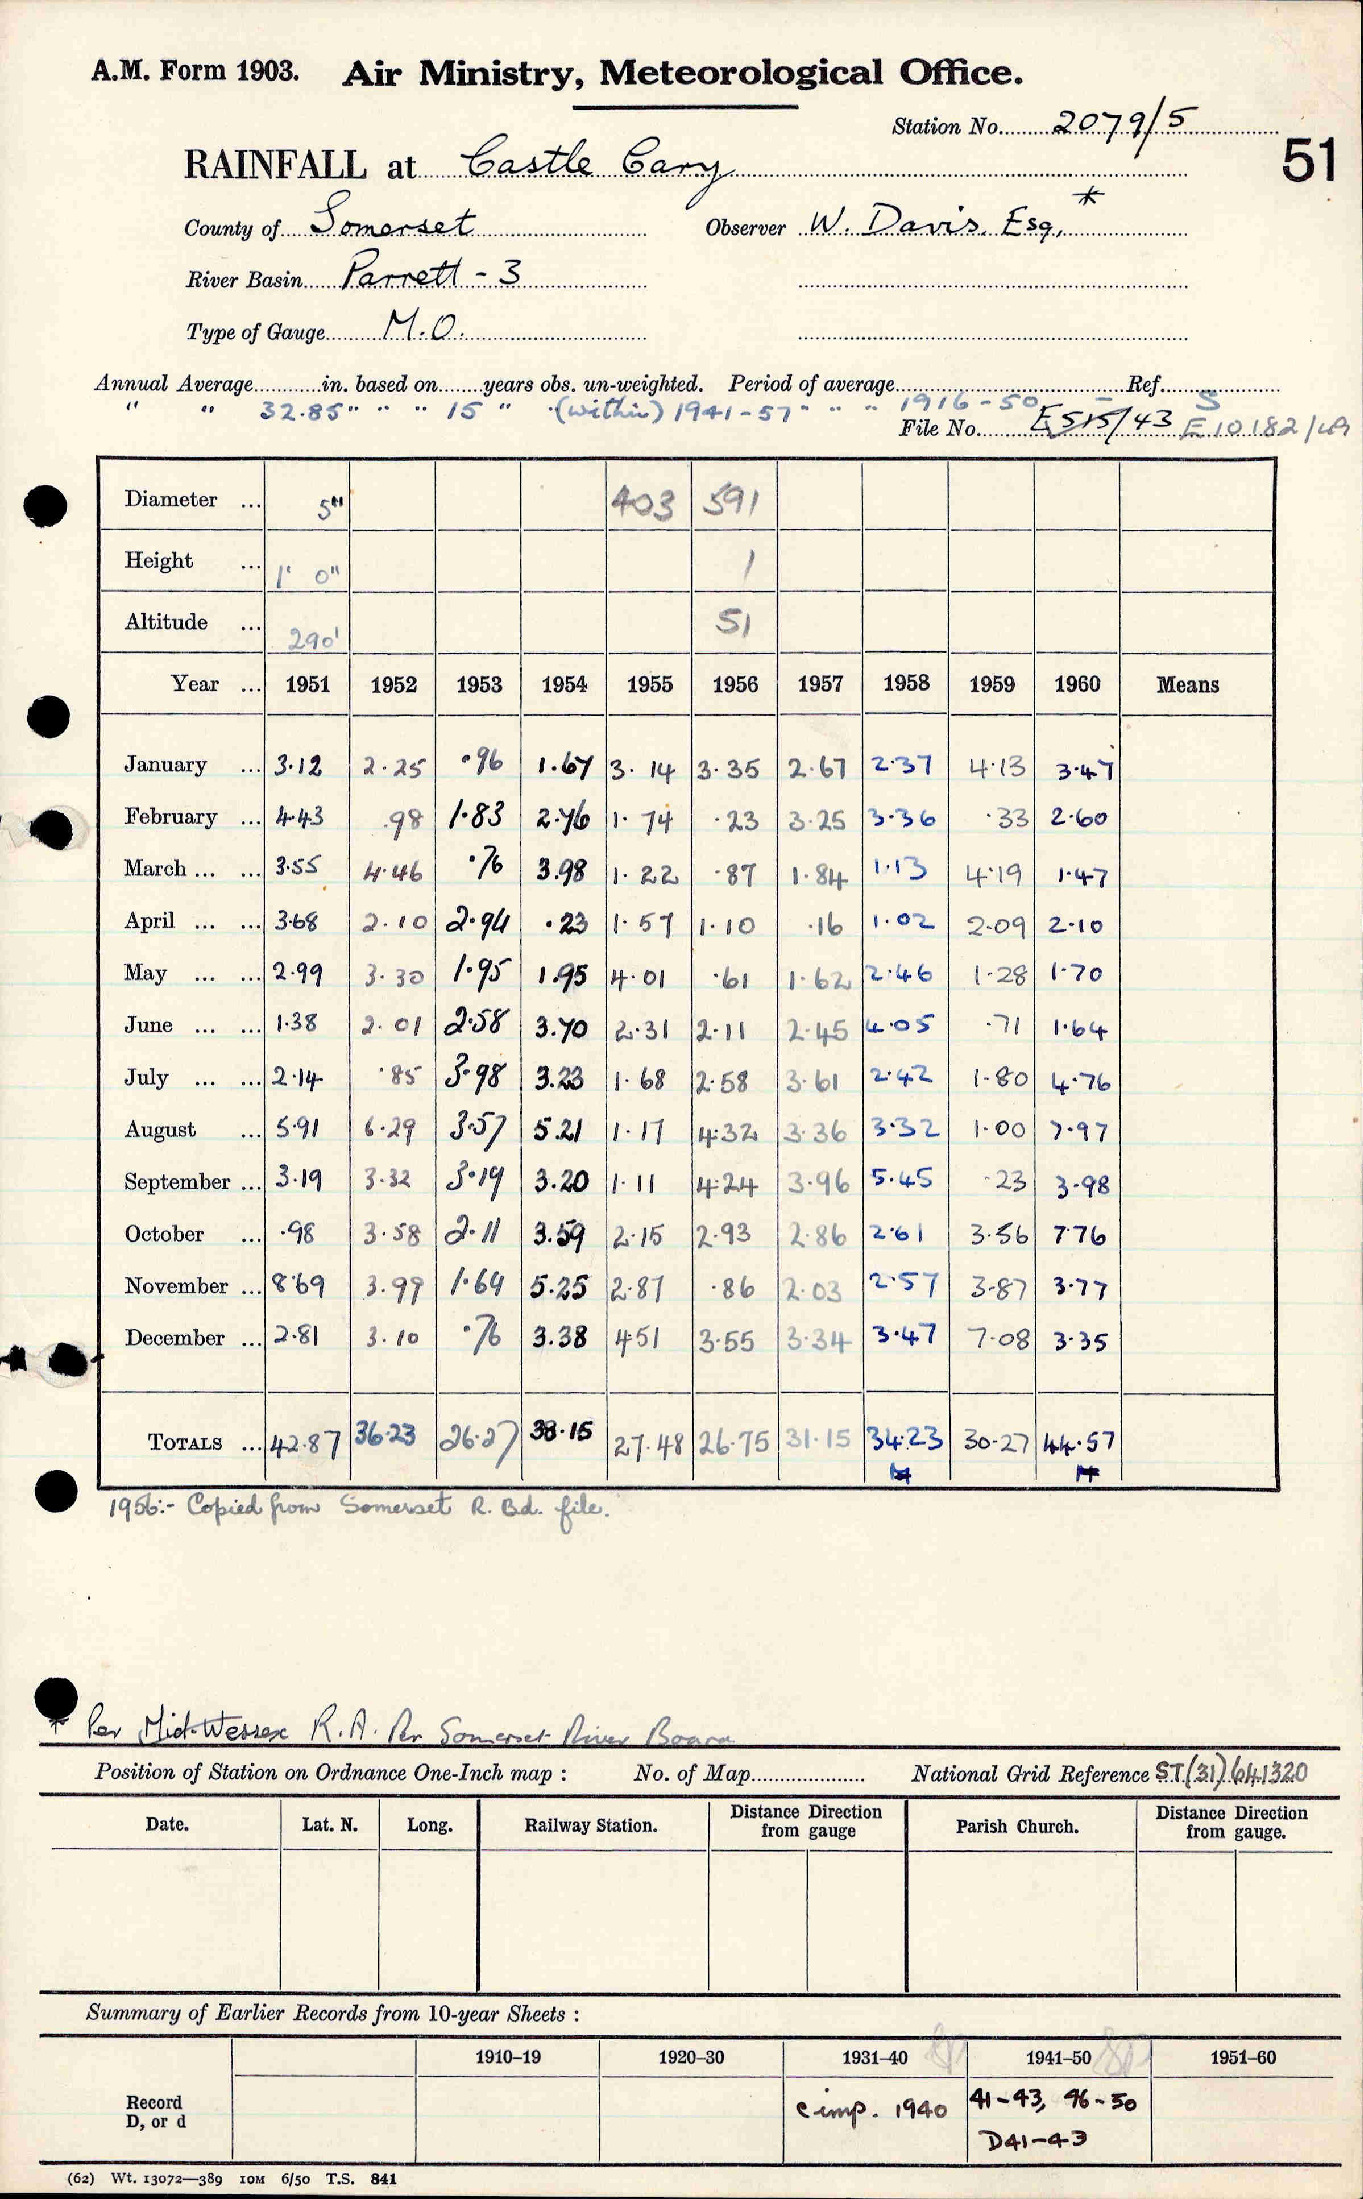 A.M. Form 1903. Air Ministry, Meteorological Office.
Station No. 2079/5
51
RAINFALL at Castle Cary
County of Somerset Observer W. Davis. Esq, *
River Basin Parrett - 3
Type of Gauge M.O.
Annual Average in. based on years obs. un-weighted. Period of average Ref.
" " 32.85" " " 15 " " (within) 1941-57 " " " 1916-50 - S
File No. E515/43 E10182/49
Diameter ... 5" 403 591
Height ... 1' 0" 1
Altitude ... 290' 51
Year ... 1951 1952 1953 1954 1955 1956 1957 1958 1959 1960 Means
January ... 3.12 2.25 .96 1.67 3.14 3.35 2.67 2.37 4.13 3.47
February ... 4.43 .98 1.83 2.76 1.74 .23 3.25 3.36 .33 2.60
March ... ... 3.55 4.46 .76 3.98 1.22 .87 1.84 1.13 4.19 1.47
April ... ... 3.68 2.10 2.94 .23 1.57 1.10 .16 1.02 2.09 2.10
May ... ... 2.99 3.30 1.95 1.95 4.01 .61 1.62 2.46 1.28 1.70
June ... ... 1.38 2.01 2.58 3.70 2.31 2.11 2.45 4.05 .71 1.64
July ... ... 2.14 .85 3.98 3.23 1.68 2.58 3.61 2.42 1.80 4.76
August ... 5.91 6.29 3.57 5.21 1.17 4.32 3.36 3.32 1.00 7.97
September ... 3.19 3.32 3.19 3.20 1.11 4.24 3.96 5.45 .23 3.98
October ... .98 3.58 2.11 3.59 2.15 2.93 2.86 2.61 3.56 7.76
November ... 8.69 3.99 1.64 5.25 2.87 .86 2.03 2.57 3.87 3.77
December ... 2.81 3.10 .76 3.38 4.51 3.55 3.34 3.47 7.08 3.35
TOTALS ... 42.87 36.23 26.27 38.15 27.48 26.75 31.15 34.23 30.27 44.57
1956:- Copied from Somerset R. Bd. file.
* Per Mid-Wessex R.A. Per Somerset River Board
Position of Station on Ordnance One-Inch map : No. of Map National Grid Reference ST(31)641320
Date. Lat. N. Long. Railway Station. Distance Direction from gauge Parish Church. Distance Direction from gauge.
Summary of Earlier Records from 10-year Sheets :
1910–19 1920–30 1931–40 1941–50 1951–60
Record D, or d c imp. 1940 41-43, 46-50
D41-43
(62) Wt. 13072—389 10M 6/50 T.S. 841